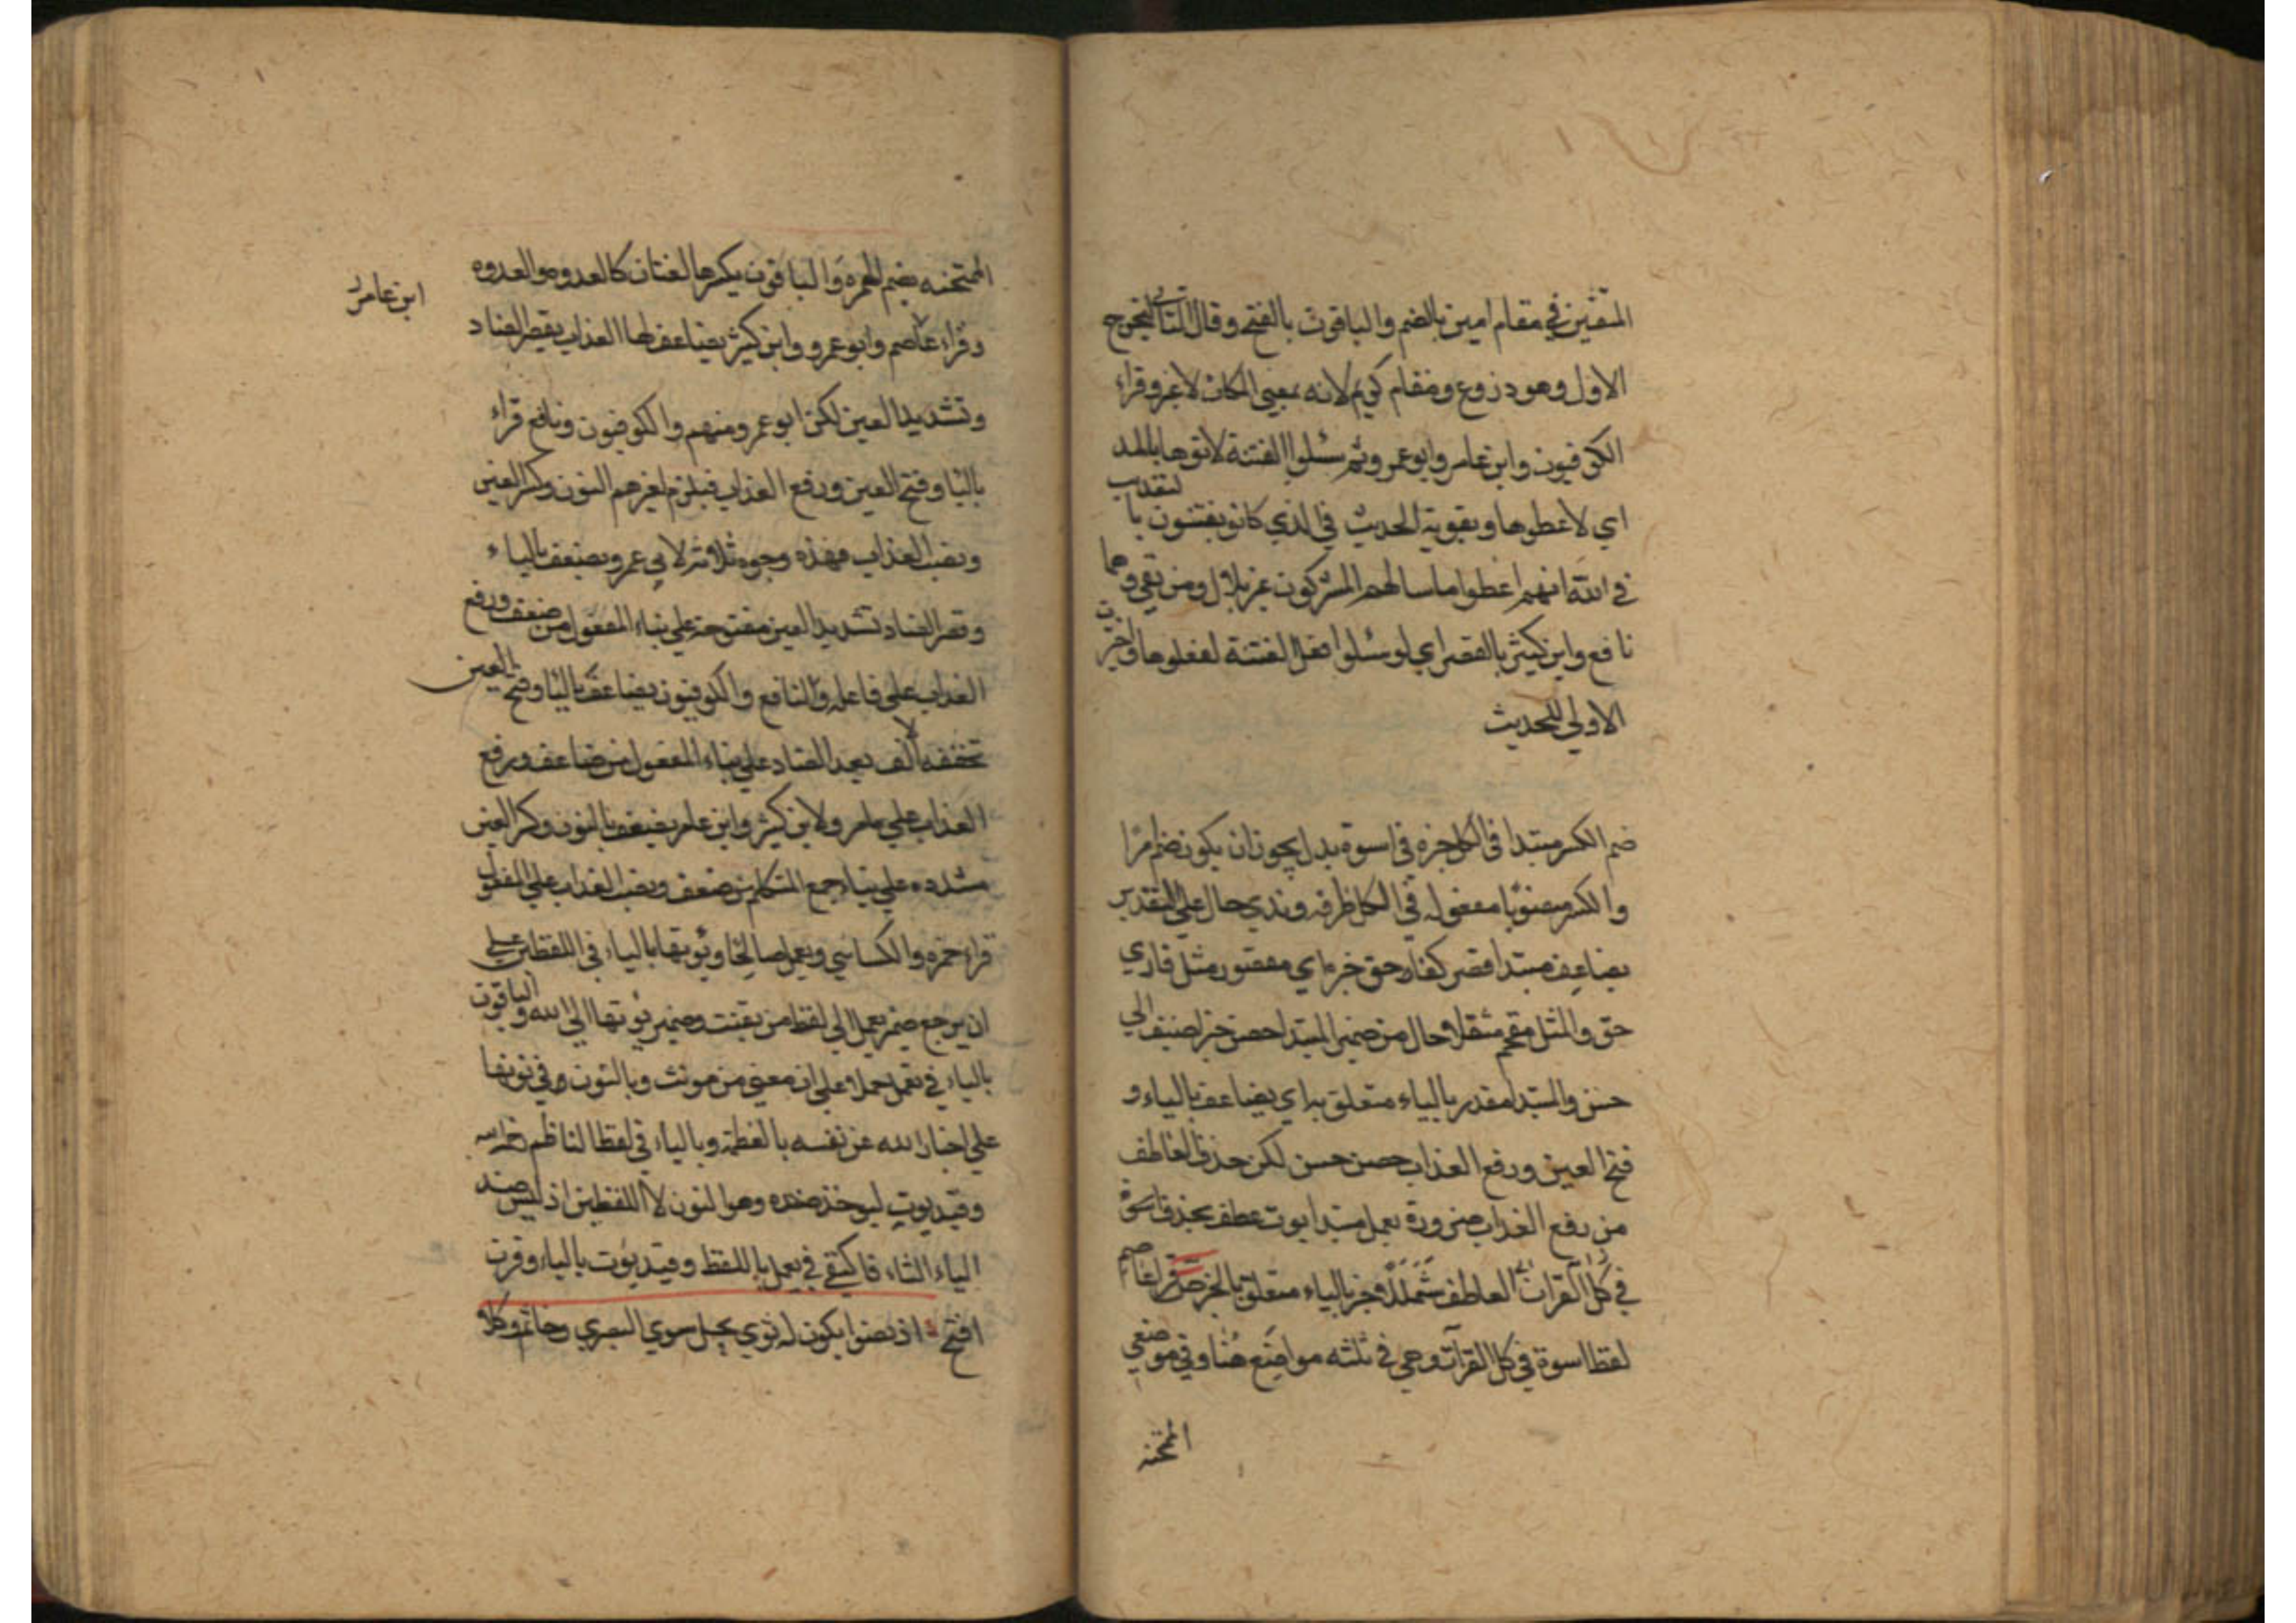 المتقين في مقام امين بالضم والباقون بالفتح وقال الثاني ليخرج
الاول وهو زروع ومقام كريم لانه بمعنى المكان لاغير وقراء
الكوفيون وابن عامر وابو عمرو ثم سئلوا الفتنة لاتوها بالمد
اي لاعطوها ويقويه الحديث في الذي كانو يفتنون با لتعذيب
في الله انهم اعطوا ما سالهم المشركون غير بلال ومن بقي وهما
نافع وابن كثير بالقصر اي لو سئلوا فعل الفتنة لفعلوها واخترت
الاولي للحديث
ضم الكسر مبتدا في الكل خبره في اسوة بدل يجوز ان يكون ضم امرا
والكسر منصوبا مفعوله في الكل ظرفه وندي حال علي التقدير
يضاعف مبتدا قصر كفا حق خبره اي مقصور مثل قاري
حق والمثل مقحم مثقلا حال من ضمير المبتدا حصن خبر اضيف الي
حسن والمبتدا مقدر بالياء متعلق به اي يضاعف بالياء و
فتح العين ورفع العذاب حصن حسن لكن حذف العاطف
من رفع العذاب ضرورة يعمل مبتدا يوت عطف بحذف
في كل القران العاطف شمللا خبر بالياء متعلق بالخبر قرا عاصم
لفظ اسوة في كل القرآن وهي في ثلثه مواضع هنا وفي موضعي
الممتحنه
الممتحنه بضم الهمزه والباقون بكسرها لغتان كالعدوه والعدوه
وقراء عاصم وابو عمرو وابن كثير يضاعف لها العذاب بقصر الضاد
ابن عامر
وتشديد العين لكن ابو عمرو منهم والكوفيون ونافع قراء
باليا وفتح العين ورفع العذاب فيلزم لغيرهم النون وكسر العين
ونصب العذاب فهذه وجوه ثلاثة لابي عمرو يضعف بالياء
وقصر الضاد تشديد العين مفتوحة علي بناء المفعول من ضعف ورفع
العذاب علي فاعله والنافع والكوفيون يضاعف باليا وفتح العين
تخففه الف بعد الضاد علي بناء المفعول من ضاعف ورفع
العذاب علي مامر ولابن كثير وابن عامر يضعف بالنون وكسر العين
مشدده علي بناء جمع المتكلم من ضعف ونصب العذاب علي المفعول
قراء حمزه والكسائي ويعمل صالحا ويؤتها بالياء في اللفظين علي
ان يرجع ضمير يعمل الي لفظ من يقنت وضمير يؤتها الي الله والباقون
بالياء في تعمل حملا علي ان معني من مونث وبالنون في نوتها
علي اخبار الله عن نفسه بالعظمة وبالياء في لفظ الناظم
وقيد يوت ليوخذ ضده وهو النون لا اللفظين اذ ليس ضد
الياء التاء فاكتفي في يعمل باللفظ وقيد يؤت بالياء وقرن
افتح اذ نصوا يكون له ثوي يحل سوي البصري وخاتم وكلا